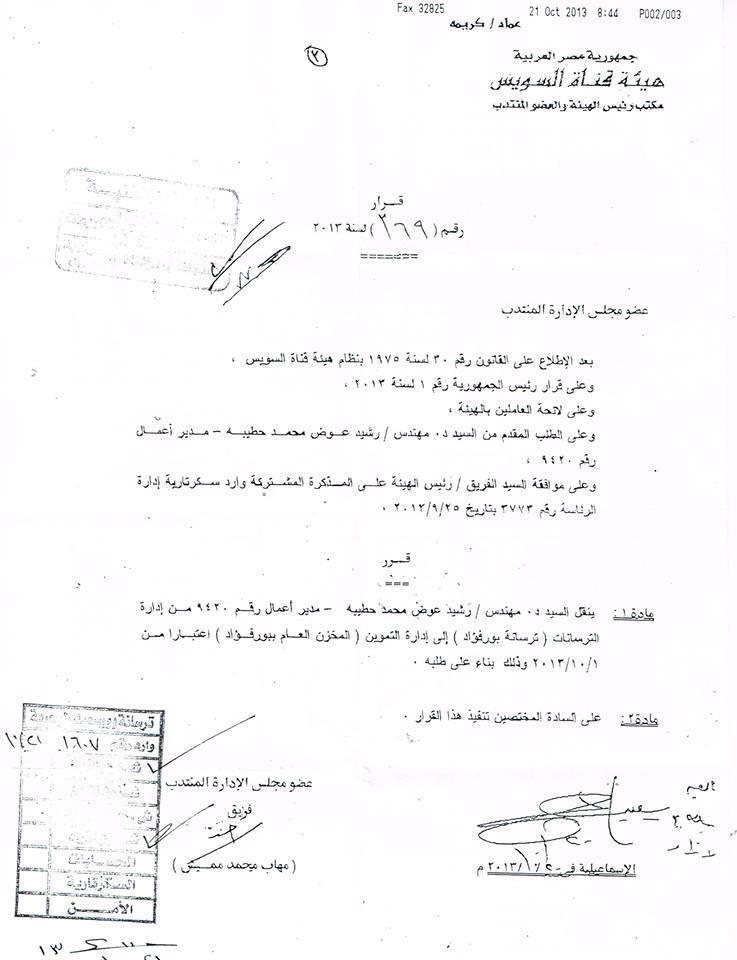 Fax 32825 21 Oct 2013 8:44 P002/003
عماد / كريمه
(٢)
جمهورية مصر العربية
هيئة قناة السويس
مكتب رئيس الهيئة والعضو المنتدب
قرار
رقم ( ٣٦٩ ) لسنة ٢٠١٣
=======
عضو مجلس الإدارة المنتدب
بعد الإطلاع على القانون رقم ٣٠ لسنة ١٩٧٥ بنظام هيئة قناة السويس ،
وعلى قرار رئيس الجمهورية رقم ١ لسنة ٢٠١٣ ،
وعلى لائحة العاملين بالهيئة ،
وعلى الطلب المقدم من السيد د٠ مهندس / رشيد عوض محمد حطيبه – مدير أعمال
رقم ٩٤٢٠ ،
وعلى موافقة السيد الفريق / رئيس الهيئة على المذكرة المشتركة وارد سكرتارية إدارة
الرئاسة رقم ٣٧٧٣ بتاريخ ٢٠١٢/٩/٢٥ ٠
قرر
===
مادة١: ينقل السيد د٠ مهندس / رشيد عوض محمد حطيبه – مدير أعمال رقم ٩٤٢٠ من إدارة
الترسانات ( ترسانة بورفؤاد ) إلى إدارة التموين ( المخزن العام ببورفؤاد ) اعتبارا من
٢٠١٣/١٠/١ وذلك بناء على طلبه ٠
مادة٢: على السادة المختصين تنفيذ هذا القرار ٠
عضو مجلس الإدارة المنتدب
فريق
( مهاب محمد مميش )
الإسماعيلية في ٢٠١٣/١٠/ م
ترسانة
وارد رقم ١٦٠٧
الحسابات
السكرتارية
الأمن